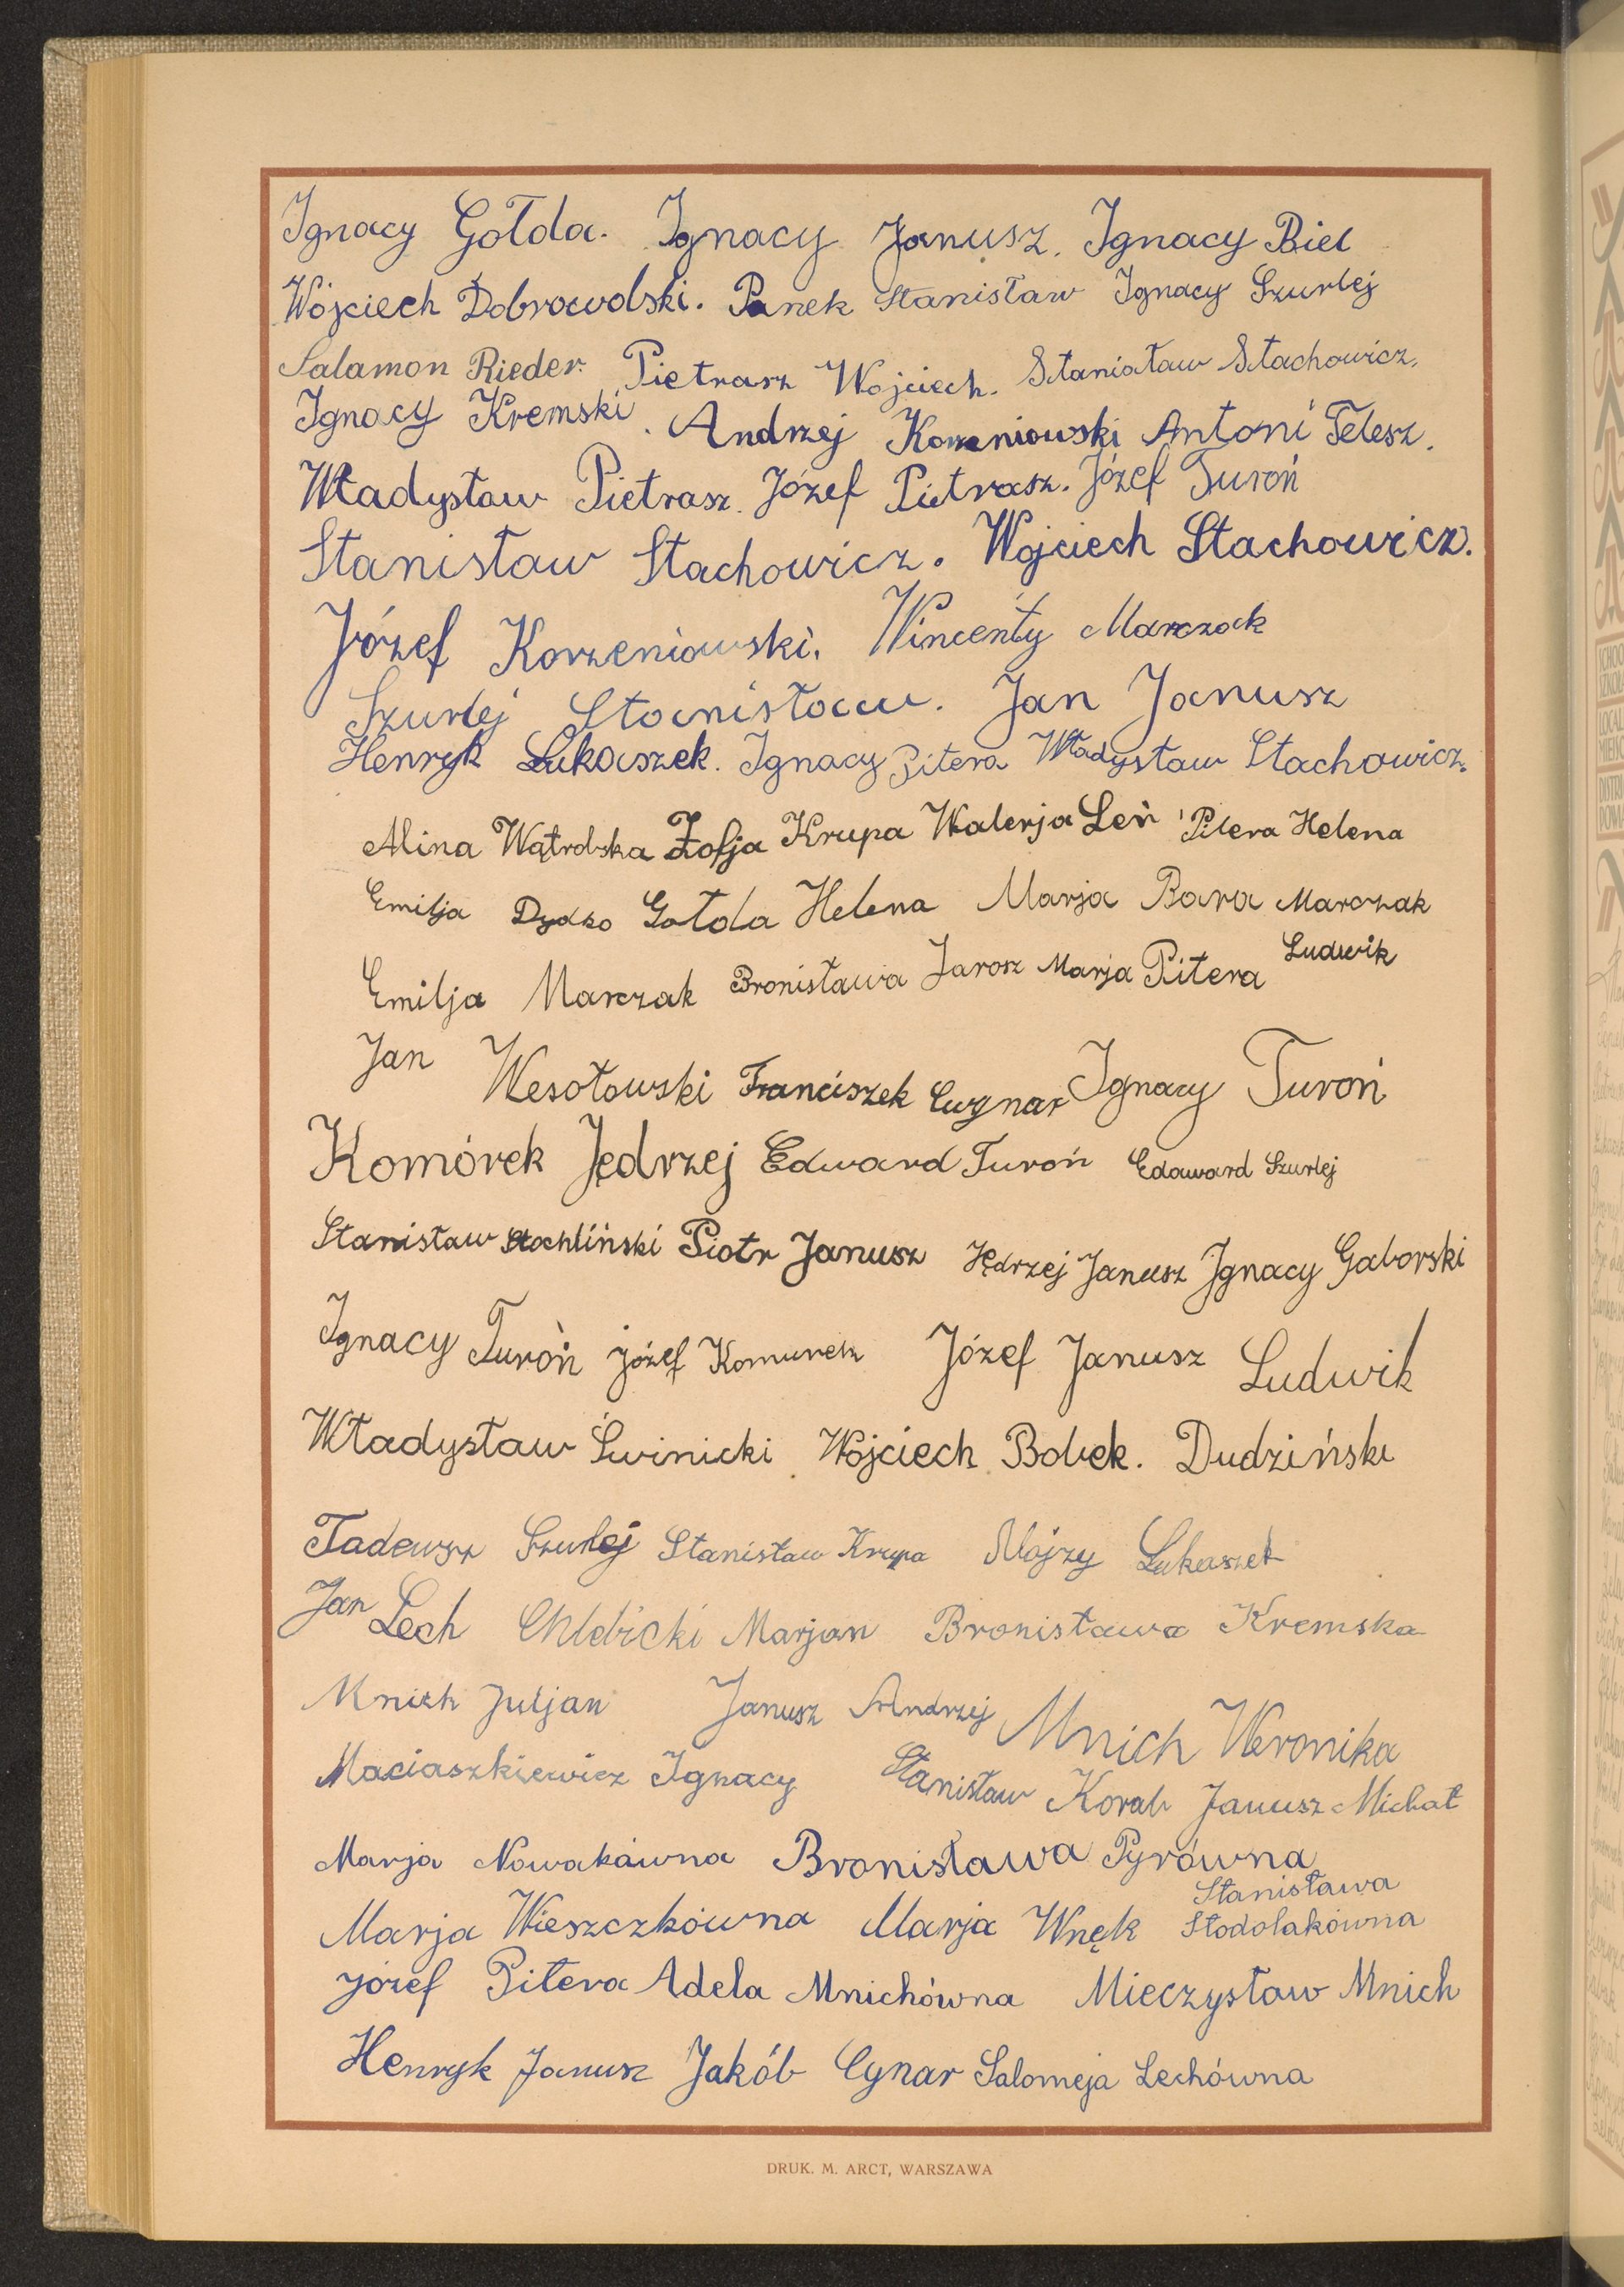 Ignacy Gołda. Ignacy Janusz. Ignacy Biel
Wójciech Dobrowolski. Panek Stanisław Ignacy Szurlej
Salamon Rieder. Pietrasz Wojciech. Stanisław Stachowicz.
Ignacy Kremski. Andrzej Korzeniowski Antoni Telesz.
Władysław Pietrasz. Józef Pietrasz. Józef Turoń
Stanisław Stachowicz. Wojciech Stachowicz.
Józef Korzeniowski. Wincenty Marczak
Szurlej Stanisław. Jan Janusz
Henryk Łukaszek. Ignacy Pitera Władysław Stachowicz.
Alina Wątrobska Zofja Krupa Walerja Leń Pitera Helena
Emilja Dydko Gołda Helena Marja Bara Marczak
Emilja Marczak Bronisława Jarosz Marja Pitera Ludwik
Jan Wesołowski Franciszek Cygnar Ignacy Turoń
Komórek Jędrzej Edward Turoń Edaward Szurlej
Stanisław Piotr Janusz Jędrzej Janusz Ignacy Gaborski
Ignacy Turoń józef Komurek Józef Janusz Ludwik
Władysław Świnicki Wójciech Bobek. Dudziński
Tadeusz Szurlej Stanisław Krupa Alojzy Łukaszek
Jan Lech Chlebicki Marjan Bronisława Kremska
Mnich Juljan Janusz Andrzej Mnich Weronika
Maciaszkiewicz Ignacy Stanisław Korab Janusz Michał
Marja Nowakówna Bronisława Pyrówna
Stanisława
Marja Wieszczkówna Marja Wnęk Stodolakówna
Józef Pitera Adela Mnichówna Mieczysław Mnich
Henryk Janusz Jakób Cynar Salomeja Lechówna
DRUK. M. ARCT, WARSZAWA